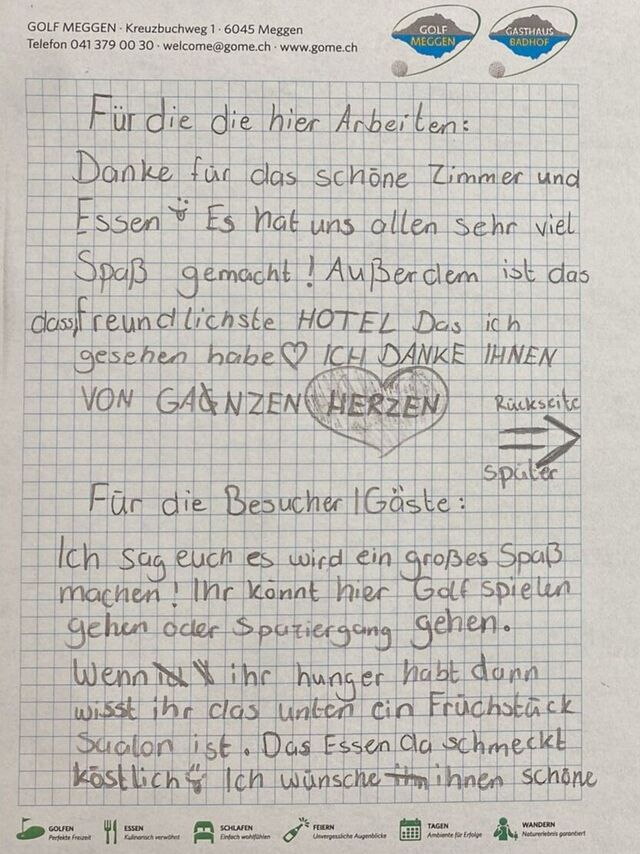 GOLF MEGGEN · Kreuzbuchweg 1 · 6045 Meggen
Telefon 041 379 00 30 · welcome@gome.ch · www.gome.ch
GOLF
MEGGEN
GASTHAUS
BADHOF
Für die die hier Arbeiten:
Danke für das schöne Zimmer und
Essen Es hat uns allen sehr viel
Spaß gemacht! Außerdem ist das
dass, freundlichste HOTEL Das ich
gesehen habe♡ ICH DANKE IHNEN
VON GANZEN HERZEN
Rückseite
⇒
später
Für die Besucher/Gäste:
Ich sag euch es wird ein großes Spaß
machen! Ihr könnt hier Golf spielen
gehen oder Spaziergang gehen.
Wenn ihr hunger habt dann
wisst ihr das unten ein Früchstück
Saalon ist. Das Essen da schmeckt
köstlich Ich wünsche ihnen schöne
GOLFEN
Perfekte Freizeit
ESSEN
Kulinarisch verwöhnt
SCHLAFEN
Einfach wohlfühlen
FEIERN
Unvergessliche Augenblicke
TAGEN
Ambiente für Erfolge
WANDERN
Naturerlebnis garantiert